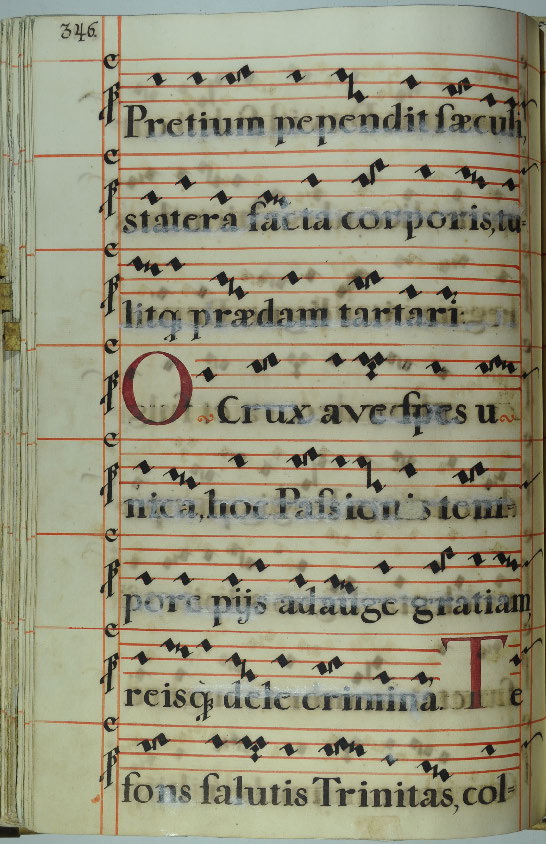 346.
Pretium pependit ſæculi,
statera facta corporis, tu-
litq́ prædam tartari.
O Crux ave ſpes u
nica, hoc Paſsionis tem-
pore pijs adauge gratiam,
reisq́ dele crimina. Te
fons ſalutis Trinitas, col-